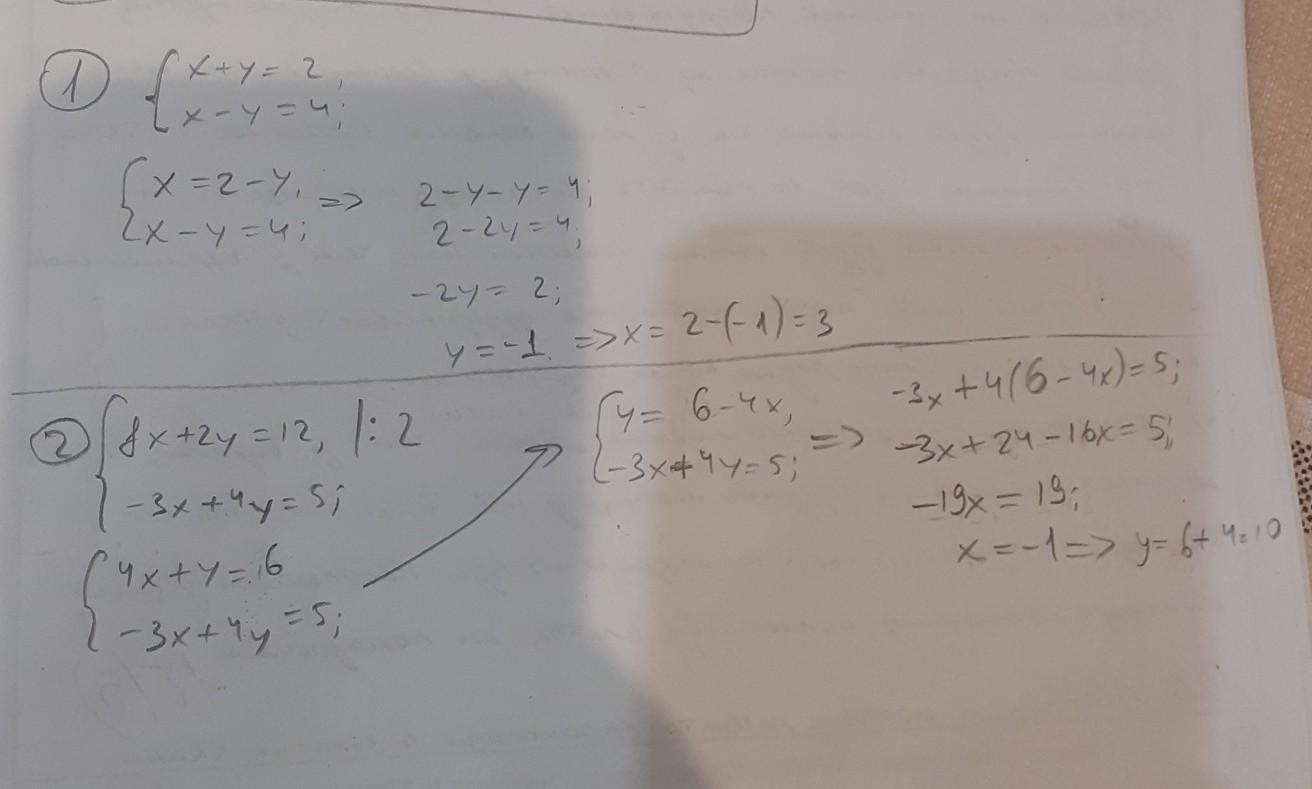 ① { x+y = 2,
x-y = 4;
{ x = 2-y,
x-y = 4; => 2-y-y = 4;
2-2y = 4;
-2y = 2;
y = -1. => x = 2-(-1) = 3
② { 8x+2y = 12, |: 2
-3x+4y = 5;
{ 4x+y = 6
-3x+4y = 5;
{ y = 6-4x,
-3x+4y = 5; =>
-3x+4(6-4x) = 5;
-3x+24-16x = 5;
-19x = 19;
x = -1 => y = 6+4=10